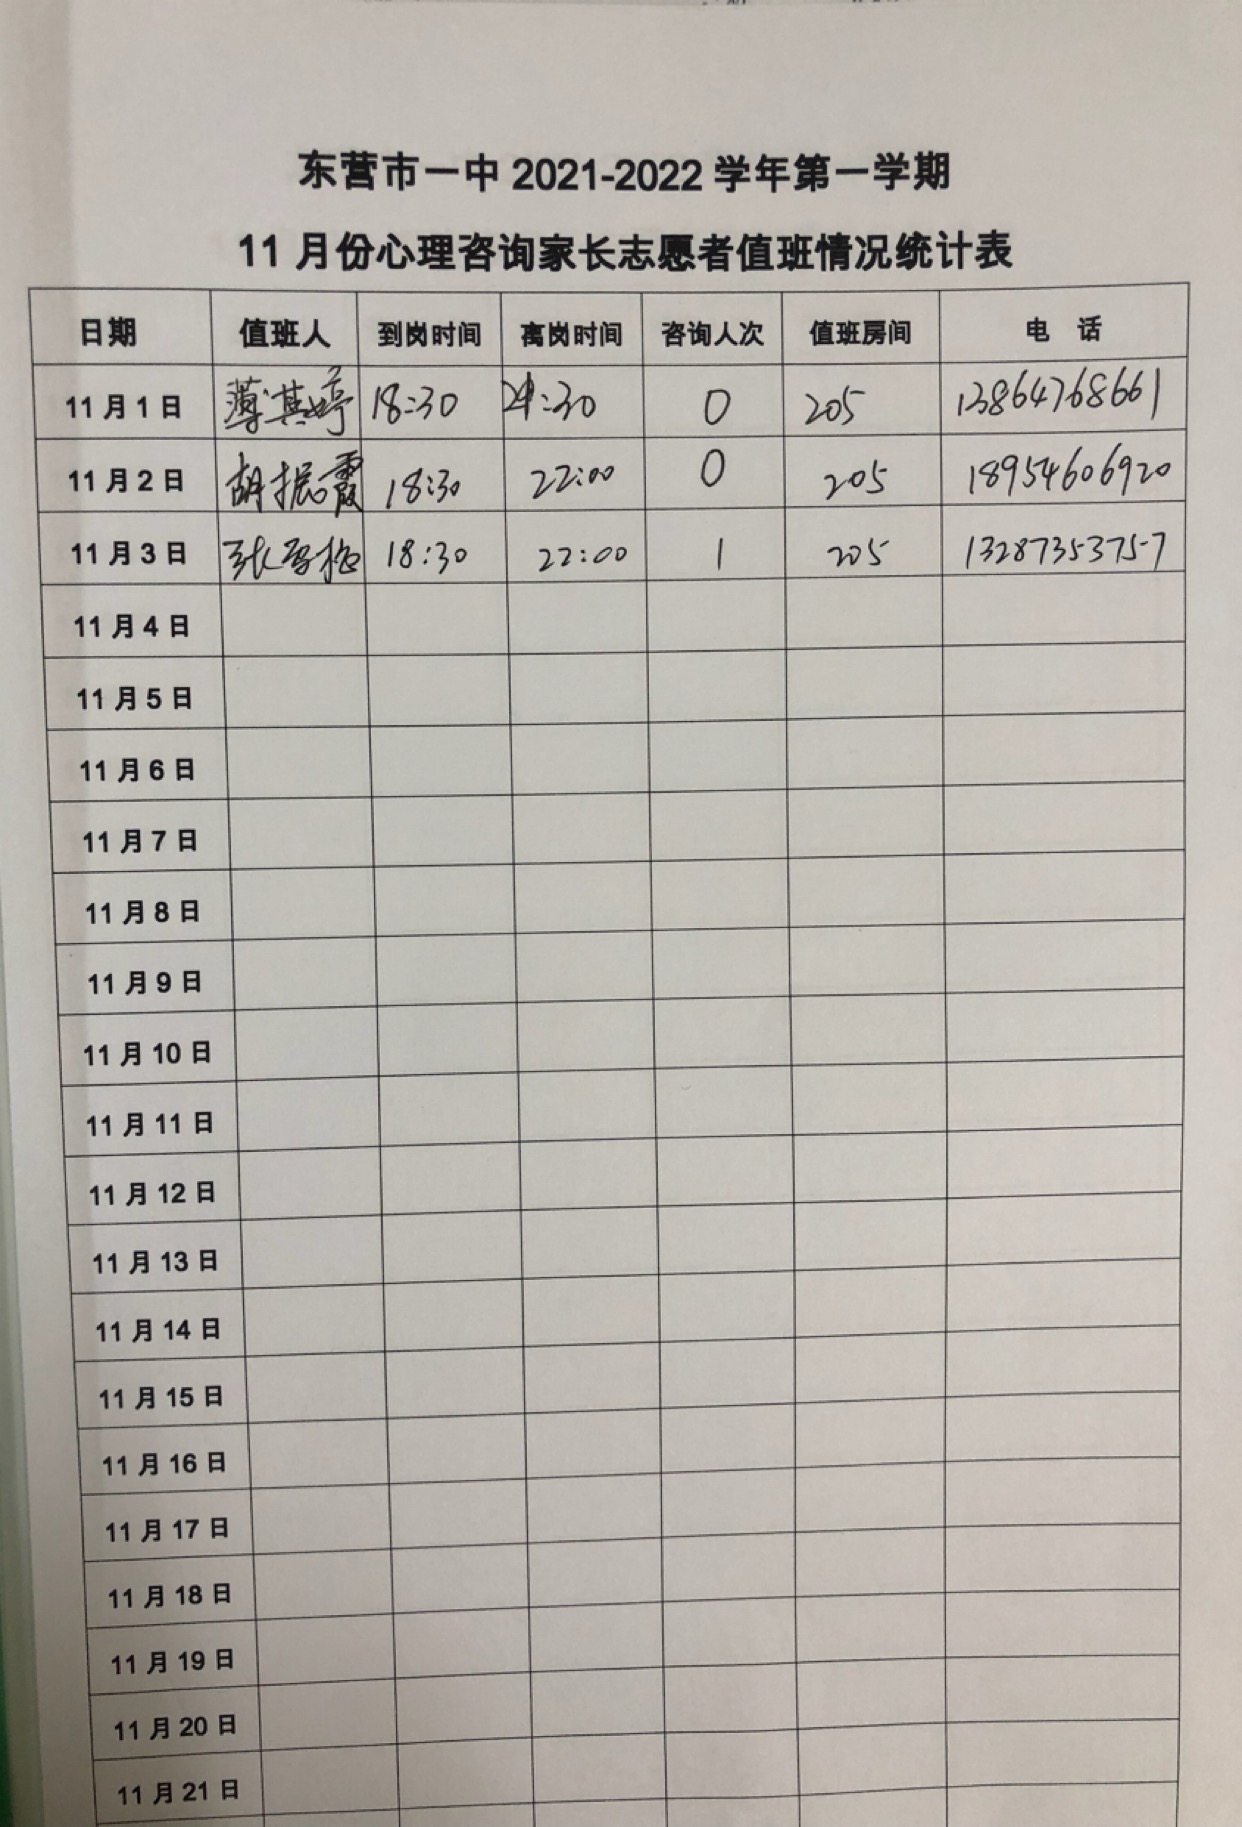 东营市一中 2021-2022 学年第一学期
11 月份心理咨询家长志愿者值班情况统计表
日期 值班人 到岗时间 离岗时间 咨询人次 值班房间 电 话
11 月 1 日 薄其婷 18:30 :30 0 205 13864768661
11 月 2 日 胡振霞 18:30 22:00 0 205 18954606920
11 月 3 日 张 梅 18:30 22:00 1 205 13287353757
11 月 4 日
11 月 5 日
11 月 6 日
11 月 7 日
11 月 8 日
11 月 9 日
11 月 10 日
11 月 11 日
11 月 12 日
11 月 13 日
11 月 14 日
11 月 15 日
11 月 16 日
11 月 17 日
11 月 18 日
11 月 19 日
11 月 20 日
11 月 21 日